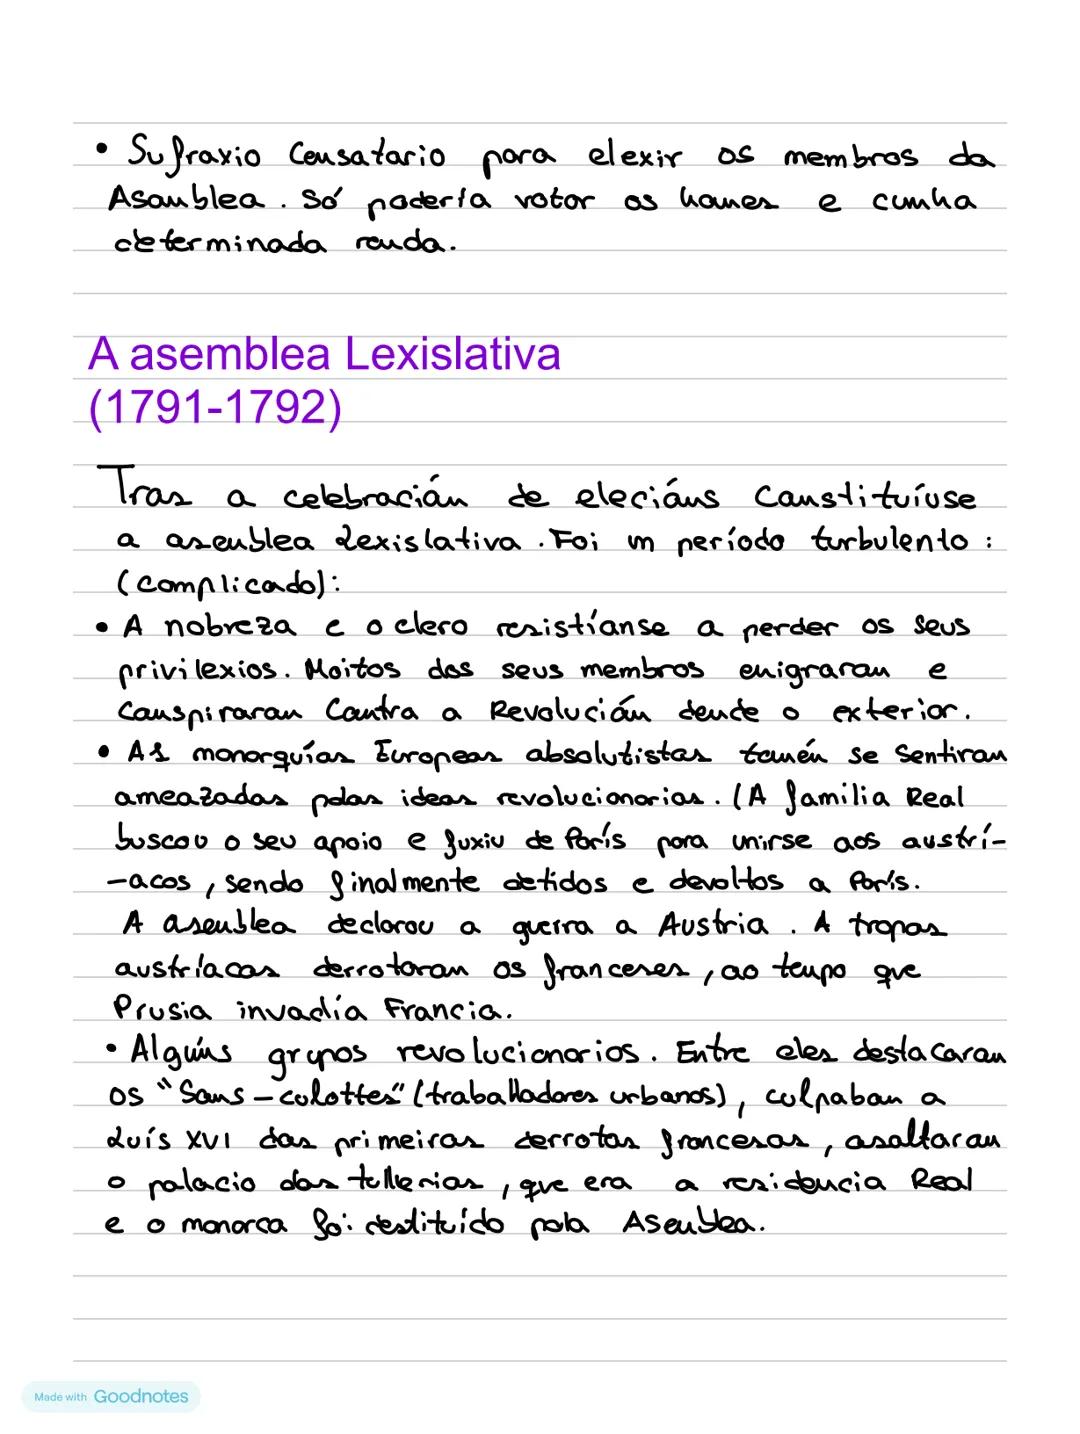 • Sufraxio Censatario para elexir os membros da
Asamblea. Só podería votar os homes e cunha
determinada renda.
A asemblea Lexislativa
(1791-1792)
Tras a celebración de elecións Constituíuse
a asemblea Lexislativa. Foi un período turbulento:
(complicado):
• A nobreza e o clero resistíanse a perder os seus
privilexios. Moitos dos seus membros emigraran e
Conspiraran Contra a Revolución dende o exterior.
• As monarquías Europeas absolutistas tamén se Sentiran
ameazadas polas ideas revolucionarias. (A familia Real
buscou o seu apoio e fuxiu de París para unirse aos austrí-
-acos, sendo finalmente detidos e devoltos a París.
A asemblea declarou a guerra a Austria. A tropas
austríacas derrotaran os franceses, ao tempo que
Prusia invadía Francia.
• Algúns grupos revolucionarios. Entre eles destacaran
os "Sans-culottes" (traballadores urbanos), culpaban a
Luís XVI das primeiras derrotas francesas, asaltaran
o palacio das tullerias, que era a residencia Real
e o monarca foi destituído pola Asemblea.
Made with Goodnotes